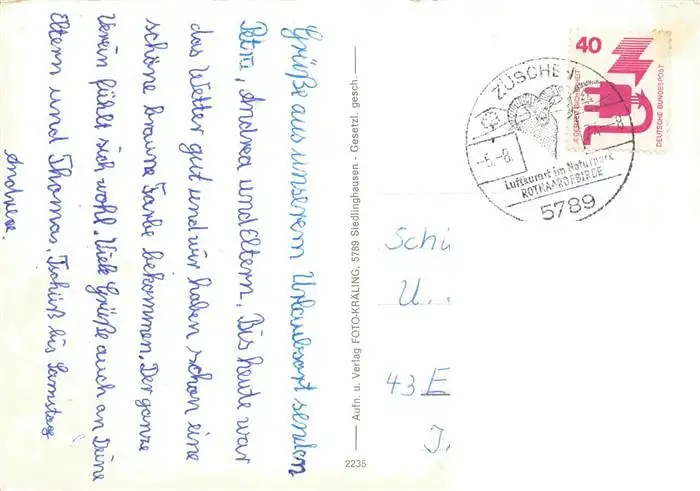 Grüße aus unserem Urlaubsort senden
Petra, Andrea und Eltern. Bis heute war
das Wetter gut und wir haben schon eine
schöne braune Farbe bekommen. Der ganze
Verein fühlt sich wohl. Viele Grüße auch an Deine
Eltern und Thomas. Tschüß bis Samstag
Andrea.
Aufn. u. Verlag FOTO-KRÄLING, 5789 Siedlinghausen - Gesetzl. gesch.
2235
40
JEDERZEIT SICHERHEIT
DEUTSCHE BUNDESPOST
ZÜSCHEN
-5.-8.
Luftkurort im Naturpark
ROTHAARGEBIRGE
5789
Schü
U.
43 E